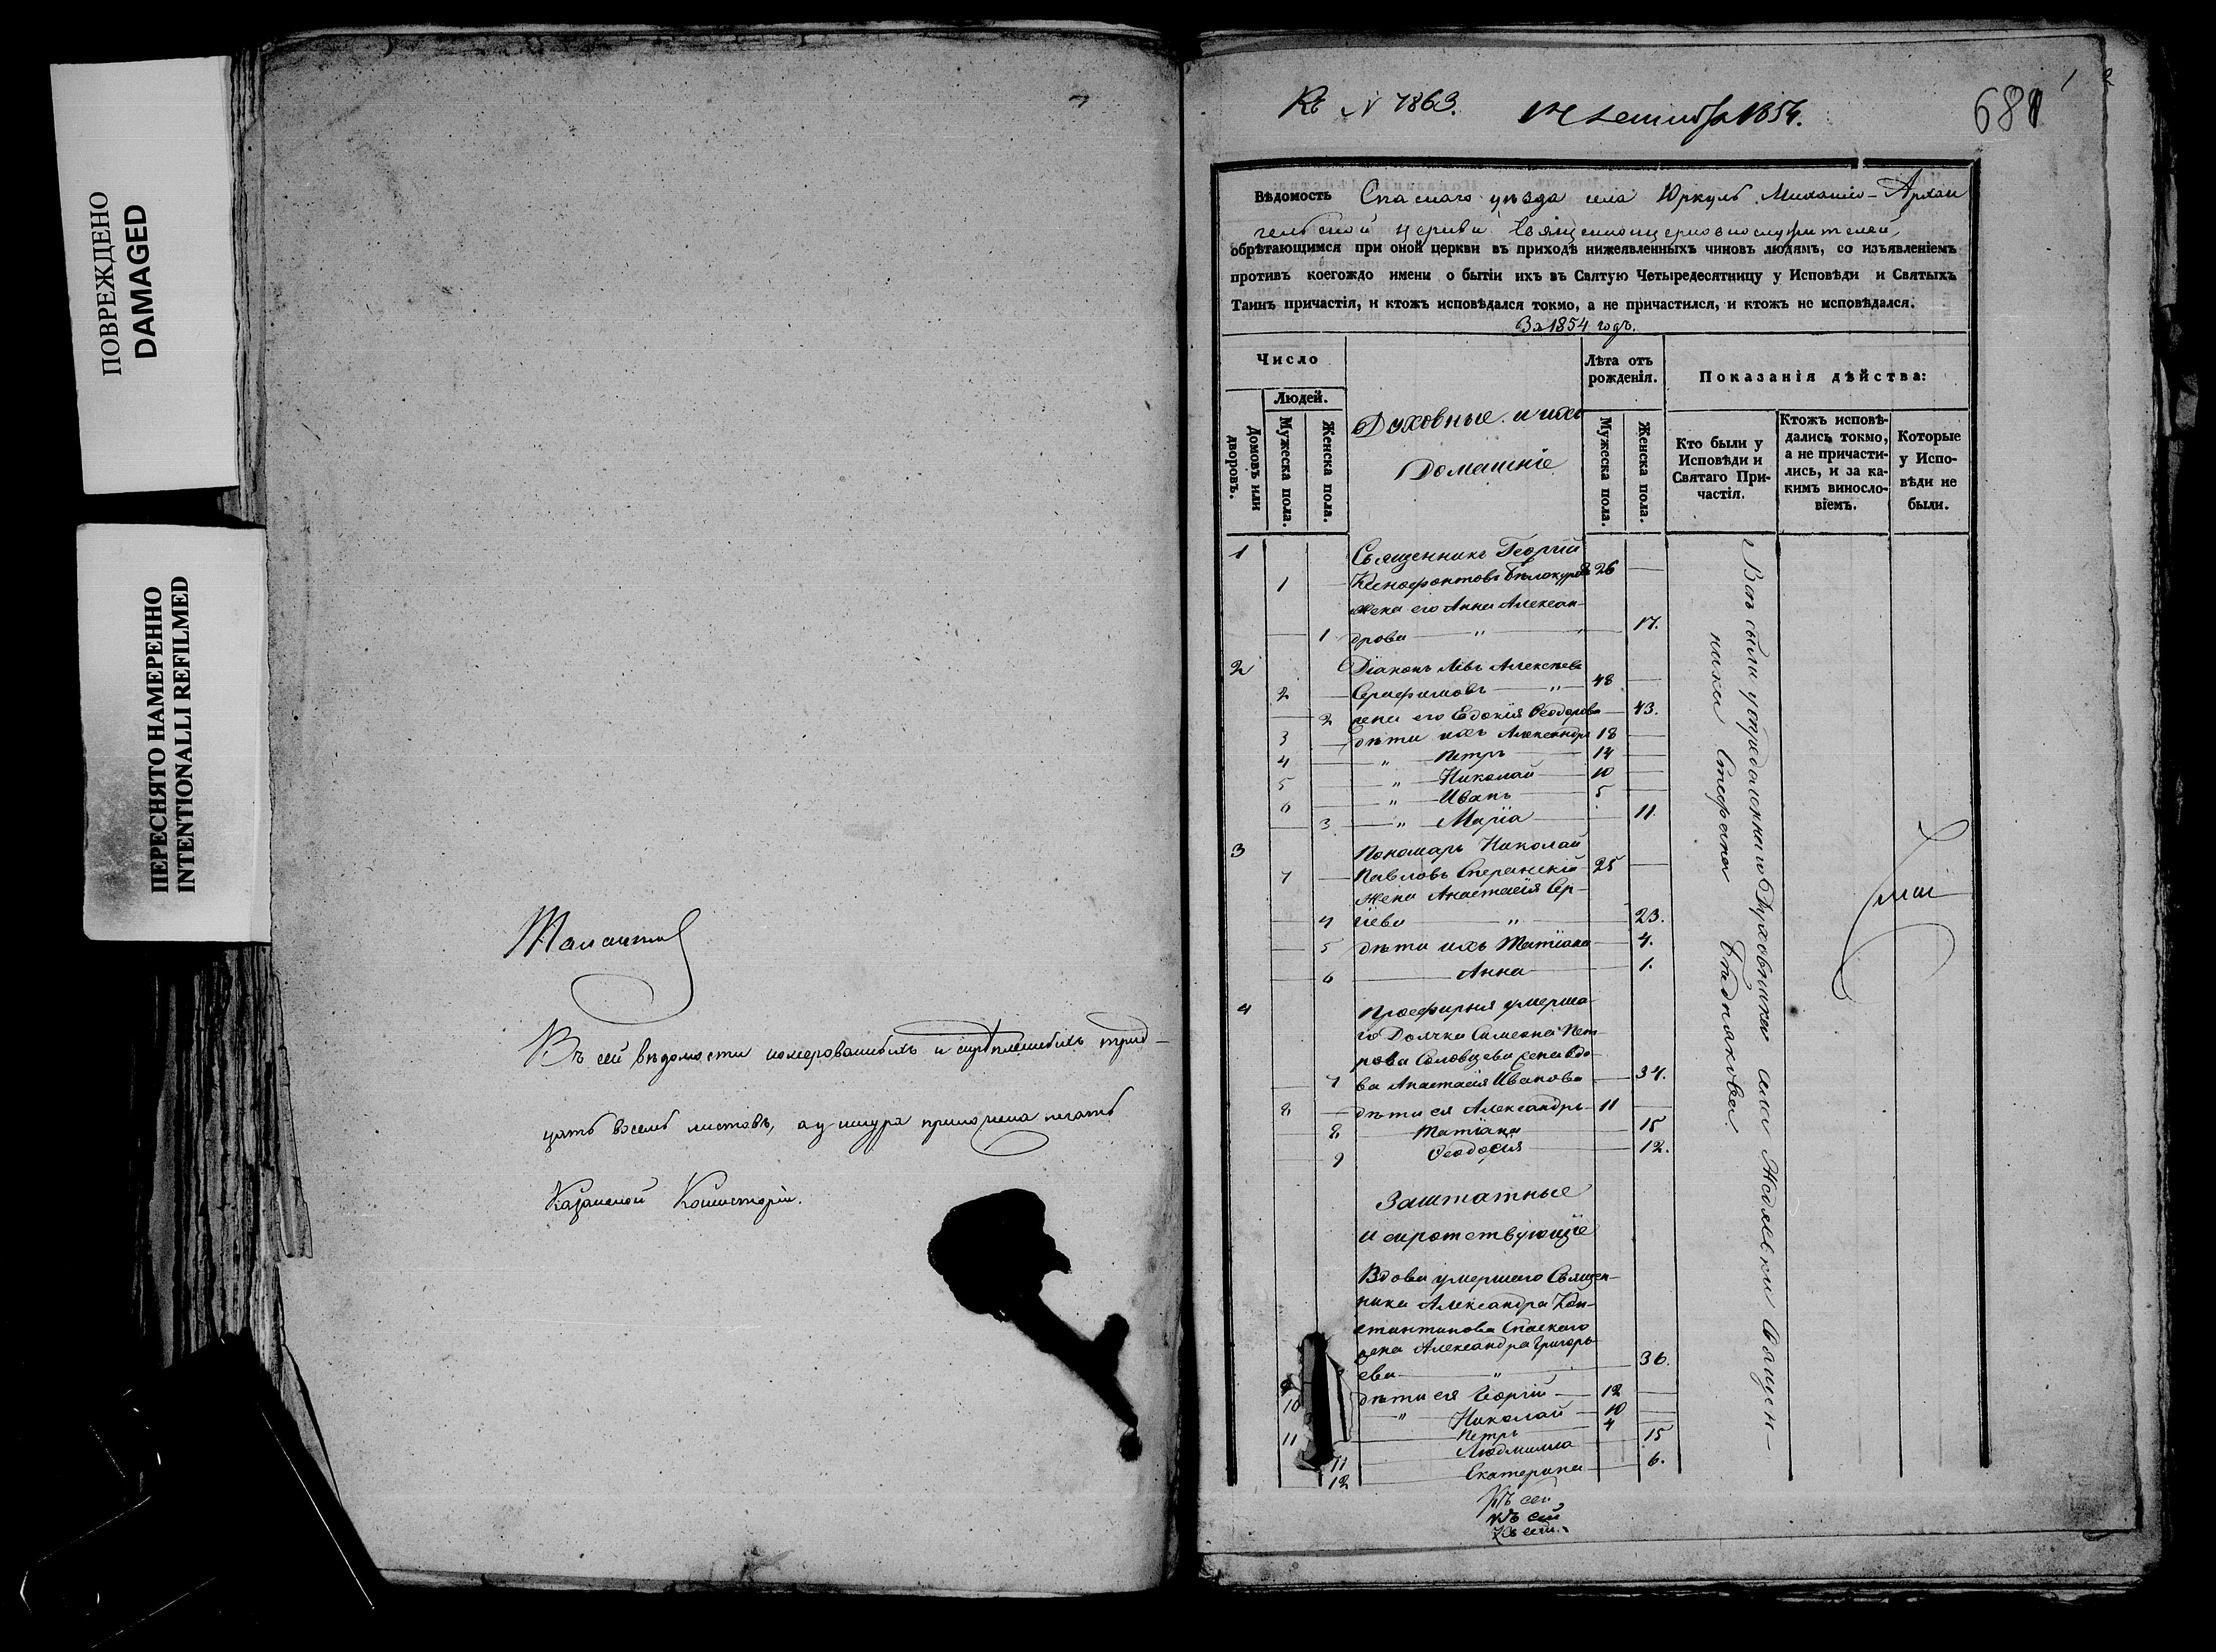 ПОВРЕЖДЕНО
DAMAGED
ПЕРЕСНЯТО НАМЕРЕННО
INTENTIONALLI REFILMED
Въ сей вѣдомости номерованныхъ и скрѣпленныхъ трид-
цать восемь листовъ, а у шнура приложена печать
Казанской Консисторіи.
Къ N 7863.
1854.
681
1 2
Вѣдомость Спаскаго уѣзда села Юркуль Михаило-Архан
гельской церкви Священноцерковнослужителей,
обрѣтающимся при оной церкви въ приходѣ нижеявленныхъ чиновъ людямъ, со изъявленіемъ
противъ коегождо имени о бытіи ихъ въ Святую Четыредесятницу у Исповѣди и Святыхъ
Таинъ причастія, и ктожъ исповѣдался токмо, а не причастился, и ктожъ не исповѣдался.
За 1854 годъ.
Число
Людей.
Домовъ или дворовъ.
Мужеска пола.
Женска пола.
Духовные и ихъ
Домашніе
Лѣта отъ
рожденія.
Мужеска пола.
Женска пола.
Показанія дѣйства:
Кто были у
Исповѣди и
Святаго При-
частія.
Ктожъ исповѣ-
дались токмо,
а не причасти-
лись, и за ка-
кимъ винословіемъ.
Которые
у Испо-
вѣди не
были.
1 Священникъ Георгій
1 Ксенофонтовъ Бѣлокуровъ 26
жена его Анна Алексан-
1 дрова " " 17.
2 Діаконъ Левъ Алексѣевъ
2 Серафимовъ " 48
2 жена его Евдокія Ѳеодорова 43.
3 дѣти ихъ Александръ 18
4 " Петръ 14
5 " Николай 10
6 " Иванъ 5
3 " Марія 11.
3 Пономарь Николай
7 Павловъ Сперанскій 25
жена Анастасія Сер-
4 гіева " 23.
5 дѣти ихъ Татіана 4.
6 Анна 1.
4 Просфирня умерша-
го Дьячка Симеона Пет-
рова Соловцева жена вдо-
7 ва Анастасія Иванова 34.
8 дѣти ея Александръ 11
8 Татіана 15
9 Ѳеодосія 12.
Заштатные
и сиротствующіе
Вдова умершаго Священ-
ника Александра Кон-
стантинова Спаскаго
жена Александра Григорь-
ева " 36.
9 дѣти ея Георгій 12
10 " Николай 10
11 Петръ 4
11 Людмилла 15
12 Екатерина 6.
Всѣ были у опредѣленнаго Духовника села Жедяевки Священ-
ника Стефана Бѣднякова.
Къ сей
Къ сей
Къ сей